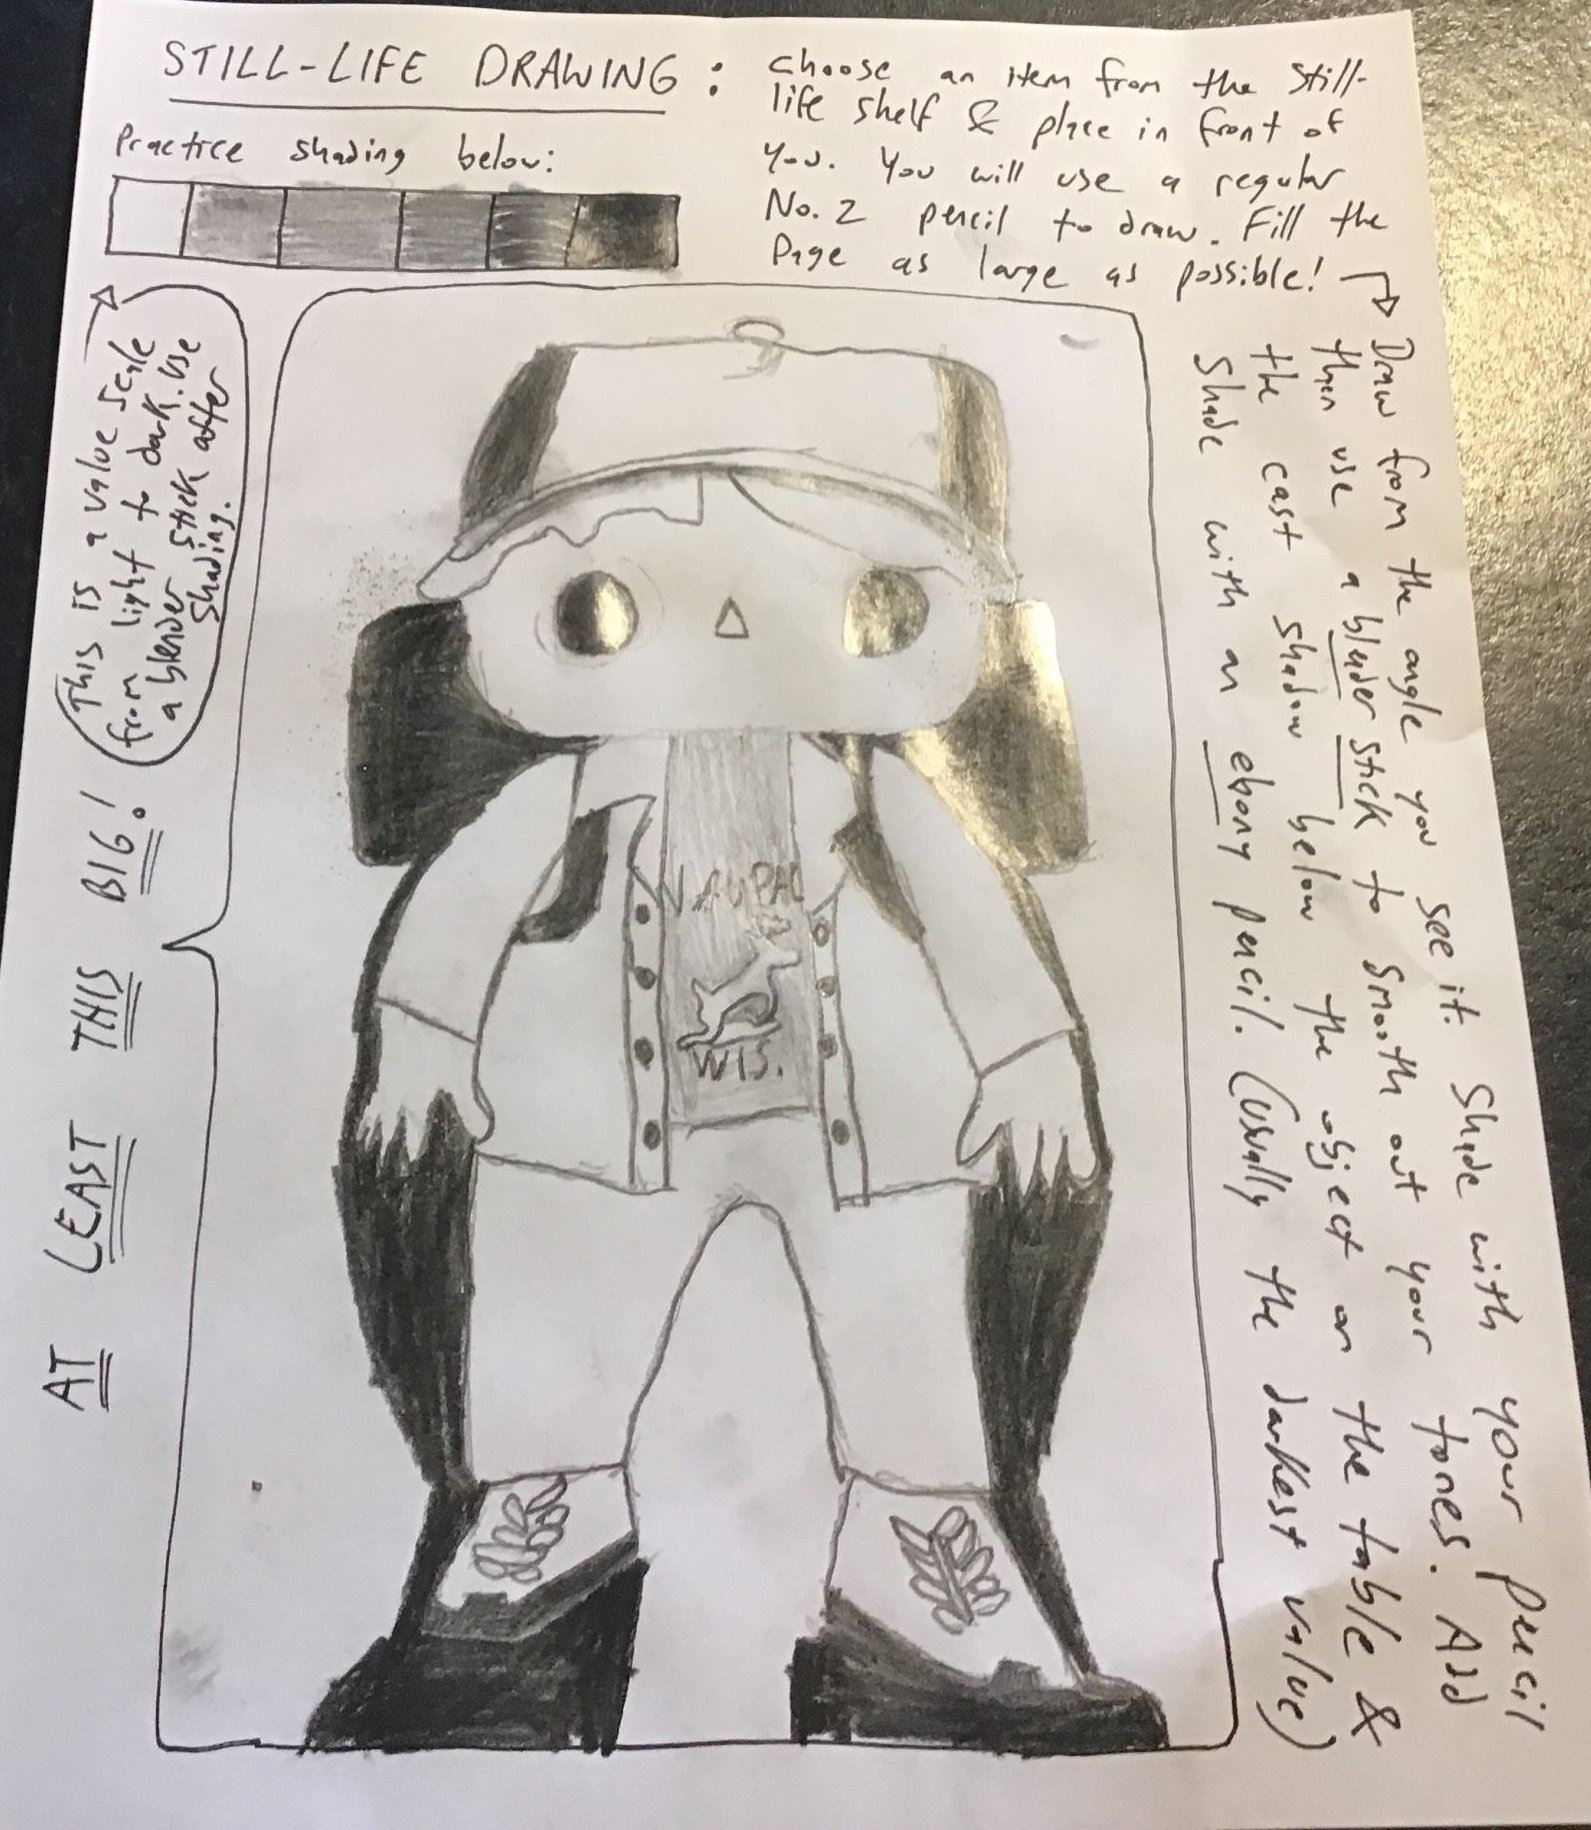 STILL-LIFE DRAWING:
choose an item from the still-
life shelf & place in front of
you. You will use a regular
No. 2 pencil to draw. Fill the
Page as large as possible!
Practice shading below:
This is a value scale
from light to dark. Use
a blender stick after
shading.
AT LEAST THIS BIG!
Draw from the angle you see it. Shade with your pencil
then use a blender stick to smooth out your tones. Add
the cast shadow below the object on the table &
Shade with an ebony pencil. (usually the darkest value)
WAUPAC
WIS.